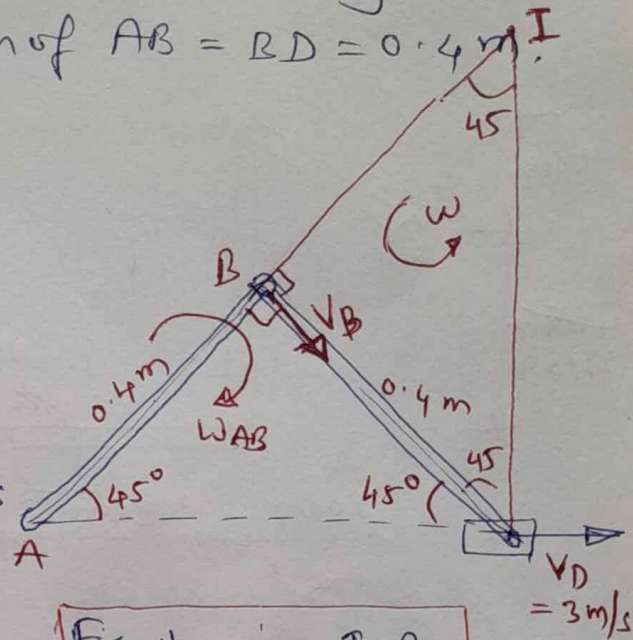 n of AB = BD = 0.4 m.
I
45
ω
B
V_B
0.4 m
0.4 m
ω_AB
45
45°
45°
A
V_D
= 3 m/s